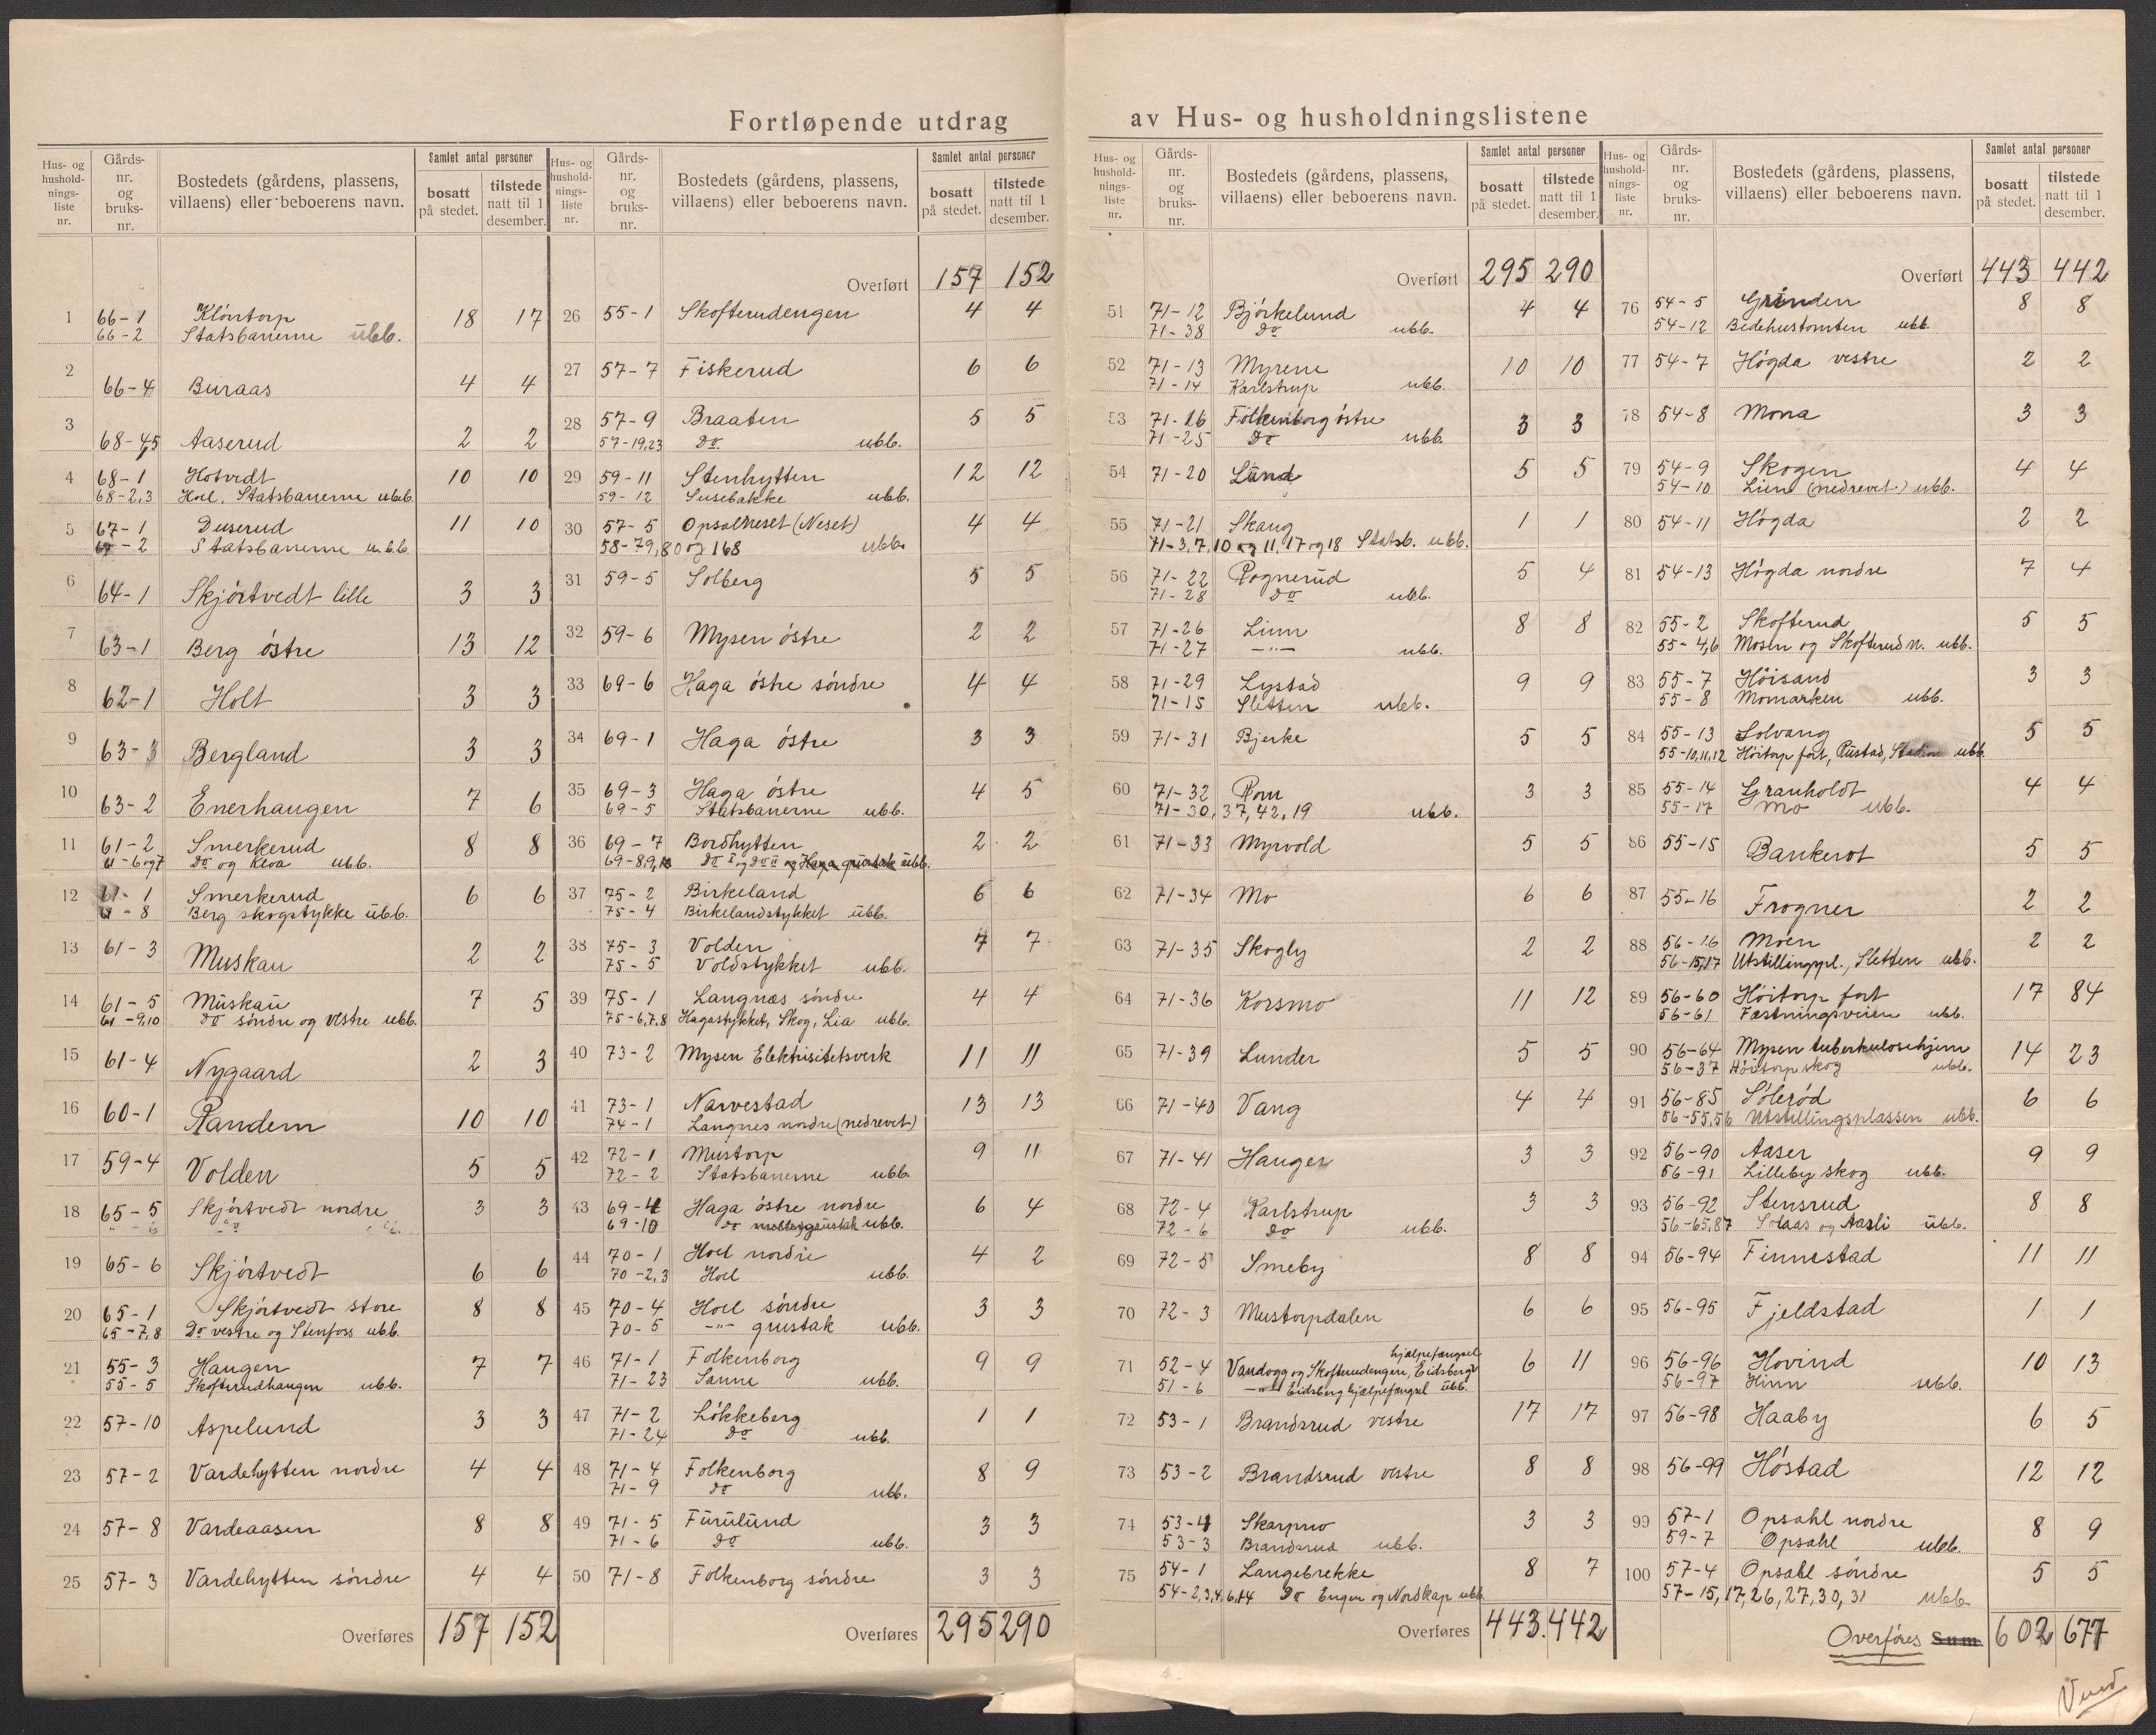 Fortløpende utdrag av Hus- og husholdningslistene
Hus- og husholdnings-liste nr. | Gårds-nr. og bruks-nr. | Bostedets (gårdens, plassens, villaens) eller beboerens navn. | Samlet antal personer: bosatt på stedet. | tilstede natt til 1 desember.
1 66-1 Klöntorp 18 17
66-2 Statsbanerne übb.
2 66-4 Buraas 4 4
3 68-4,5 Aaserud 2 2
4 68-1 Hotvedt 10 10
68-2,3 Hoel, Statsbanerne ubeb.
5 67-1 Duserud 11 10
67-2 Statsbanerne ubb.
6 64-1 Skjörtvedt lille 3 3
7 63-1 Berg östre 13 12
8 62-1 Holt 3 3
9 63-3 Bergland 3 3
10 63-2 Enerhaugen 7 6
11 61-2 Smerkerud 8 8
61-6og7 Do og Kloa ubb.
12 61-1 Smerkerud 6 6
61-8 Berg skogstykke übb.
13 61-3 Muskau 2 2
14 61-5 Muskaü 7 5
61-9,10 Do söndre og vestre ubb.
15 61-4 Nygaard 2 3
16 60-1 Randem 10 10
17 59-4 Volden 5 5
18 65-5 Skjörtvedt nordre 3 3
19 65-6 Skjörtvedt 6 6
20 65-1 Skjörtvedt store 8 8
65-7,8 Do vestre og Stenfoss ubb.
21 55-3 Haugen 7 7
55-5 Skofterudhaugen ubb.
22 57-10 Aspelund 3 3
23 57-2 Vardehytten nordre 4 4
24 57-8 Vardeaasen 8 8
25 57-3 Vardehytten söndre 4 4
Overføres 157 152
Hus- og husholdnings-liste nr. | Gårds-nr. og bruks-nr. | Bostedets (gårdens, plassens, villaens) eller beboerens navn. | Samlet antal personer: bosatt på stedet. | tilstede natt til 1 desember.
Overført 157 152
26 55-1 Skofterudengen 4 4
27 57-7 Fiskerud 6 6
28 57-9 Braaten 5 5
57-19,23 do. ubb.
29 59-11 Stenhytten 12 12
59-12 Susebakke ubb.
30 57-5 Opsalneset (Neset) 4 4
58-79,80 og 168 ubb.
31 59-5 Solberg 5 5
32 59-6 Mysen östre 2 2
33 69-6 Haga östre söndre 4 4
34 69-1 Haga östre 3 3
35 69-3 Haga östre 4 5
69-5 Statsbanerne ubb.
36 69-7 Bordhytten 2 2
69-8,9,10 Do I og Do II og Haga grustak übb.
37 75-2 Birkeland 6 6
75-4 Birkelandstykket übb.
38 75-3 Volden 7 7
75-5 Voldstykket ubb.
39 75-1 Langnæs söndre 4 4
75-6,7,8 Hagastykket, Skog, Lia ubb.
40 73-2 Mysen Elektrisitetsverk 11 11
41 73-1 Narvestad 13 13
74-1 Langnes nordre (nedrevet)
42 72-1 Mustorp 9 11
72-2 Statsbanerne ubb.
43 69-4 Haga östre nordre 6 4
69-10 do grustak ubb.
44 70-1 Hoel nordre 4 2
70-2,3 Hoel ubb.
45 70-4 Hoel söndre 3 3
70-5 -"- grustak ubb.
46 71-1 Folkenborg 9 9
71-23 Sanne ubb.
47 71-2 Lökkeberg 1 1
71-24 do ubb.
48 71-4 Folkenborg 8 9
71-9 do ubb.
49 71-5 Furulund 3 3
71-6 do ubb.
50 71-8 Folkenborg söndre 3 3
Overføres 295 290
Hus- og husholdnings-liste nr. | Gårds-nr. og bruks-nr. | Bostedets (gårdens, plassens, villaens) eller beboerens navn. | Samlet antal personer: bosatt på stedet. | tilstede natt til 1 desember.
Overført 295 290
51 71-12 Björkelund 4 4
71-38 do ubb.
52 71-13 Myrene 10 10
71-14 Karlstrup ubb.
53 71-16 Folkenborg östre 3 3
71-25 do ubb.
54 71-20 Lund 5 5
55 71-21 Skaug 1 1
71-3,7,10 og 11, 17 og 18 Statsb. ubb.
56 71-22 Rognerud 5 4
71-28 do ubb.
57 71-26 Linn 8 8
71-27 -"- ubb.
58 71-29 Lystad 9 9
71-15 Sletten ubb.
59 71-31 Bjerke 5 5
60 71-32 Rom 3 3
71-30, 37, 42, 19 ubb.
61 71-33 Myrvold 5 5
62 71-34 Mo 6 6
63 71-35 Skogly 2 2
64 71-36 Korsmo 11 12
65 71-39 Lunder 5 5
66 71-40 Vang 4 4
67 71-41 Hauger 3 3
68 72-4 Karlstrup 3 3
72-6 do ubb.
69 72-5 Smeby 8 8
70 72-3 Mustorpdalen 6 6
71 52-4 Vandogg og Skofterudengen, Eidsberg hjælpefængsel 6 11
51-6 -"- Eidsberg hjælpefængsel übb.
72 53-1 Brandsrud vestre 17 17
73 53-2 Brandsrud vestre 8 8
74 53-4 Skarpno 3 3
53-3 Brandsrud ubb.
75 54-1 Langebrekke 8 7
54-2,3,4,6,14 Do Enger og Nordkap ubb.
Overføres 443. 442
Hus- og husholdnings-liste nr. | Gårds-nr. og bruks-nr. | Bostedets (gårdens, plassens, villaens) eller beboerens navn. | Samlet antal personer: bosatt på stedet. | tilstede natt til 1 desember.
Overført 443 442
76 54-5 Grinden 8 8
54-12 Bedehustomten ubb.
77 54-7 Högda vestre 2 2
78 54-8 Mona 3 3
79 54-9 Skogen 4 4
54-10 Lien (nedrevet) ubb.
80 54-11 Högda 2 2
81 54-13 Högda nordre 7 4
82 55-2 Skofterud 5 5
55-4,6 Mosen og Skofterud n. ubb.
83 55-7 Höisand 3 3
55-8 Momarken ubb.
84 55-13 Solvang 5 5
55-10,11,12 Höitorp fort, Rustad, Stadion ubb.
85 55-14 Granholdt 4 4
55-17 Mo ubb.
86 55-15 Bankerot 5 5
87 55-16 Frogner 2 2
88 56-16 Moen 2 2
56-15,17 Utstillingspl., Sletten ubb.
89 56-60 Höitorp fort 17 84
56-61 Fæstningsveien ubb.
90 56-64 Mysen tuberkulosehjem 14 23
56-37 Höitorp skog ubb.
91 56-85 Sölerød 6 6
56-55,56 Utstillingsplassen ubb.
92 56-90 Aaser 9 9
56-91 Lilleby skog ubb.
93 56-92 Stensrud 8 8
56-65,87 Solaas og Aasli übb.
94 56-94 Finnestad 11 11
95 56-95 Fjeldstad 1 1
96 56-96 Hovind 10 13
56-97 Hinn ubb.
97 56-98 Haaby 6 5
98 56-99 Höstad 12 12
99 57-1 Opsahl nordre 8 9
59-7 Opsahl ubb.
100 57-4 Opsahl söndre 5 5
57-15,17,26,27,30,31 ubb.
Overföres Sum 602 677
Vend